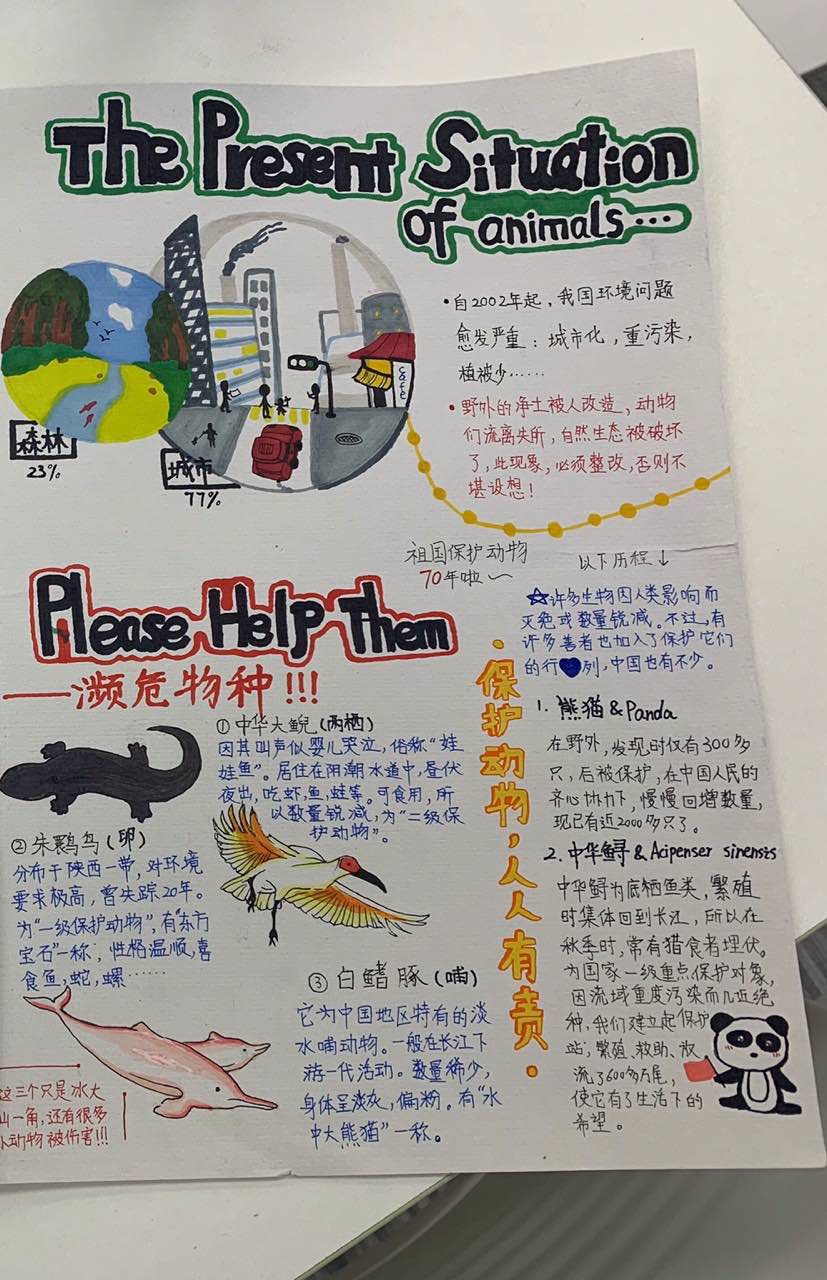 The Present Situation
of animals...
café
森林
23%
城市
77%
·自2002年起，我国环境问题
愈发严重：城市化，重污染，
植被少……
·野外的净土被人改造，动物
们流离失所，自然生态被破坏
了，此现象，必须整改，否则不
堪设想！
祖国保护动物
70年啦~
以下历程↓
Please Help Them
——濒危物种!!!
①中华大鲵(两栖)
因其叫声似婴儿哭泣，俗称“娃
娃鱼”。居住在阴潮水道中，昼伏
夜出，吃虾，鱼，蛙等。可食用，所
以数量锐减，为“二级保
护动物”。
②朱鹮鸟(卵)
分布于陕西一带，对环境
要求极高，曾失踪20年。
为“一级保护动物”，有“东方
宝石”一称，性格温顺，喜
食鱼，蛇，螺……
③白鳍豚(哺)
它为中国地区特有的淡
水哺动物。一般在长江下
游一代活动。数量稀少，
身体呈淡灰，偏粉。有“水
中大熊猫”一称。
这三个只是冰大
山一角，还有很多
动物被伤害!!!
·保护动物，人人有责·
☆许多生物因人类影响而
灭绝或数量锐减。不过，有
许多善者也加入了保护它们
的行♥列，中国也有不少。
1. 熊猫&Panda
在野外，发现时仅有300多
只，后被保护，在中国人民的
齐心协力下，慢慢回增数量，
现已有近2000多只了。
2. 中华鲟&Acipenser sinensis
中华鲟为底栖鱼类，繁殖
时集体回到长江，所以在
秋季时，常有猎食者埋伏。
为国家一级重点保护对象，
因流域重度污染而几近绝
种，我们建立起保护
站，繁殖、救助、放
流了600多万尾，
使它有了生活下的
希望。